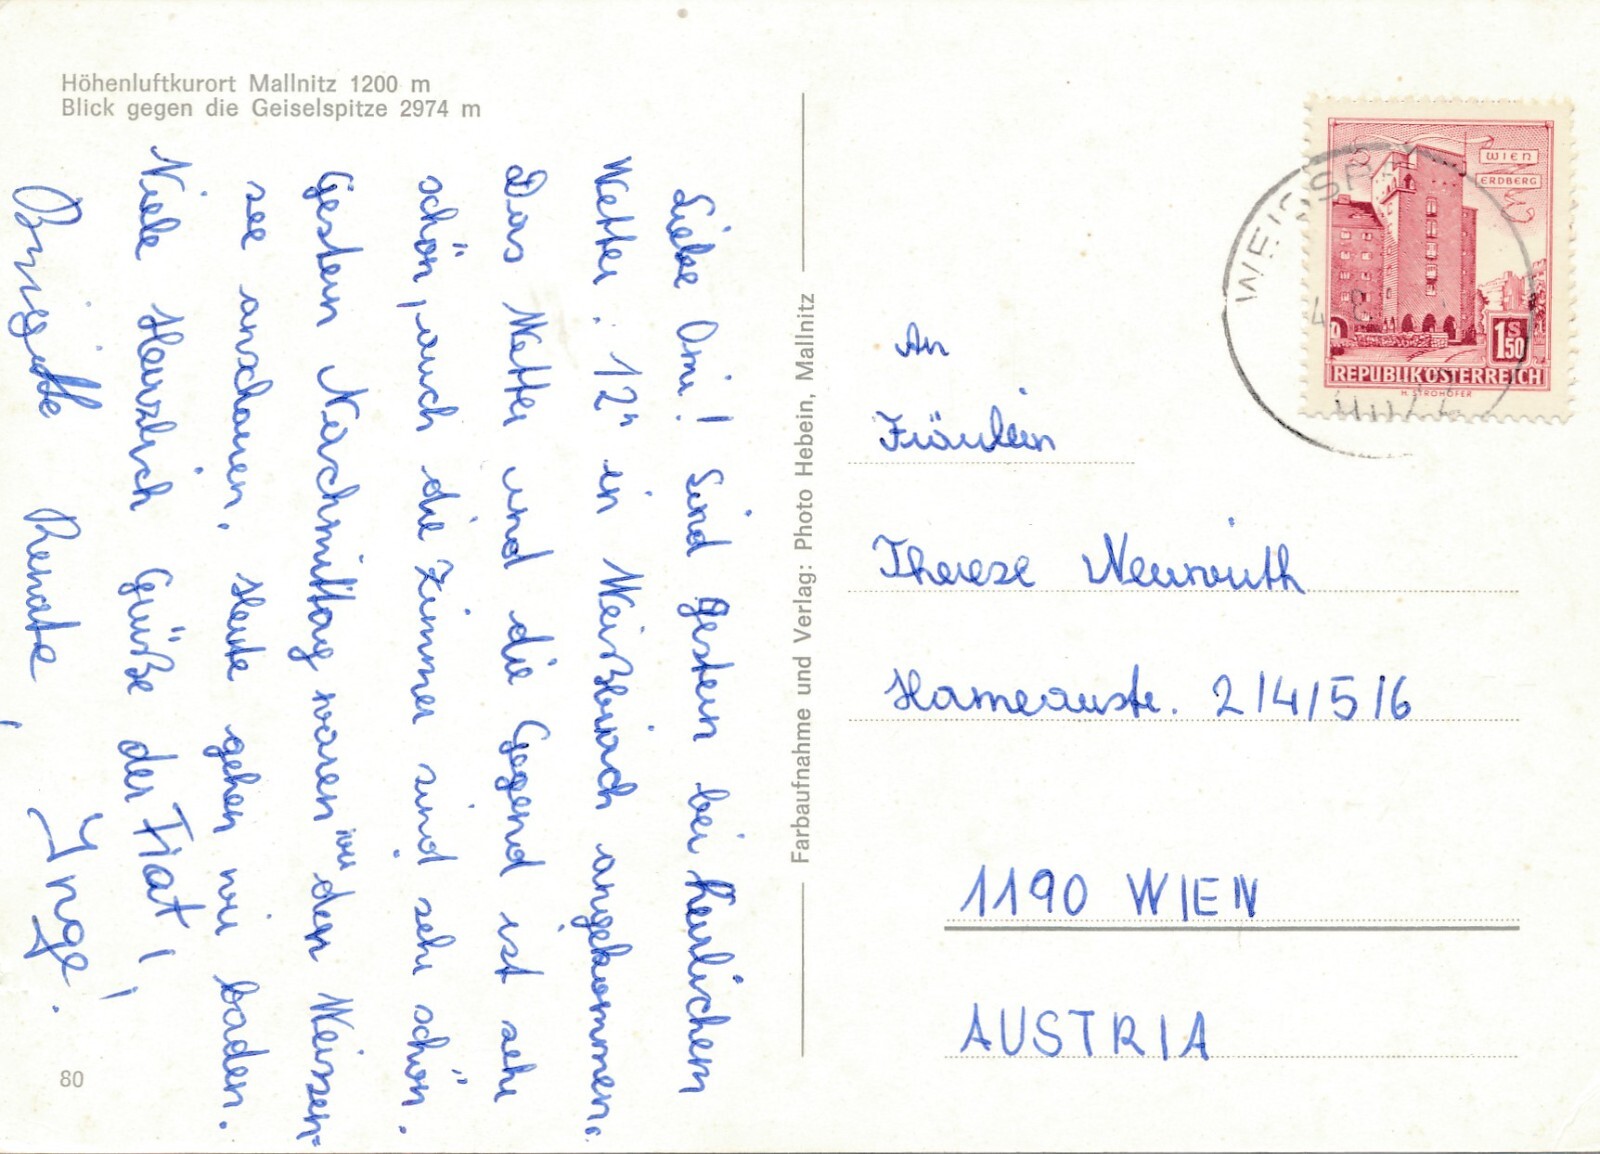 Höhenluftkurort Mallnitz 1200 m
Blick gegen die Geiselspitze 2974 m
Liebe Omi! Sind gestern bei herrlichem
Wetter. 12ʰ in Weißbriach angekommen.
Das Wetter und die Gegend ist sehr
schön, auch die Zimmer sind sehr schön.
Gestern Nachmittag waren wir den Weissen-
see anschauen. Heute gehen wir baden.
Viele Herzlich Grüße der Fiat!
Brigitte Renate, Inge!
80
Farbaufnahme und Verlag: Photo Hebein, Mallnitz
WIEN
ERDBERG
1S50
REPUBLIK ÖSTERREICH
H. STROHOFER
An
Fräulein
Therese Neuwirth
Hameaustr. 2/4/5/6
1190 WIEN
AUSTRIA